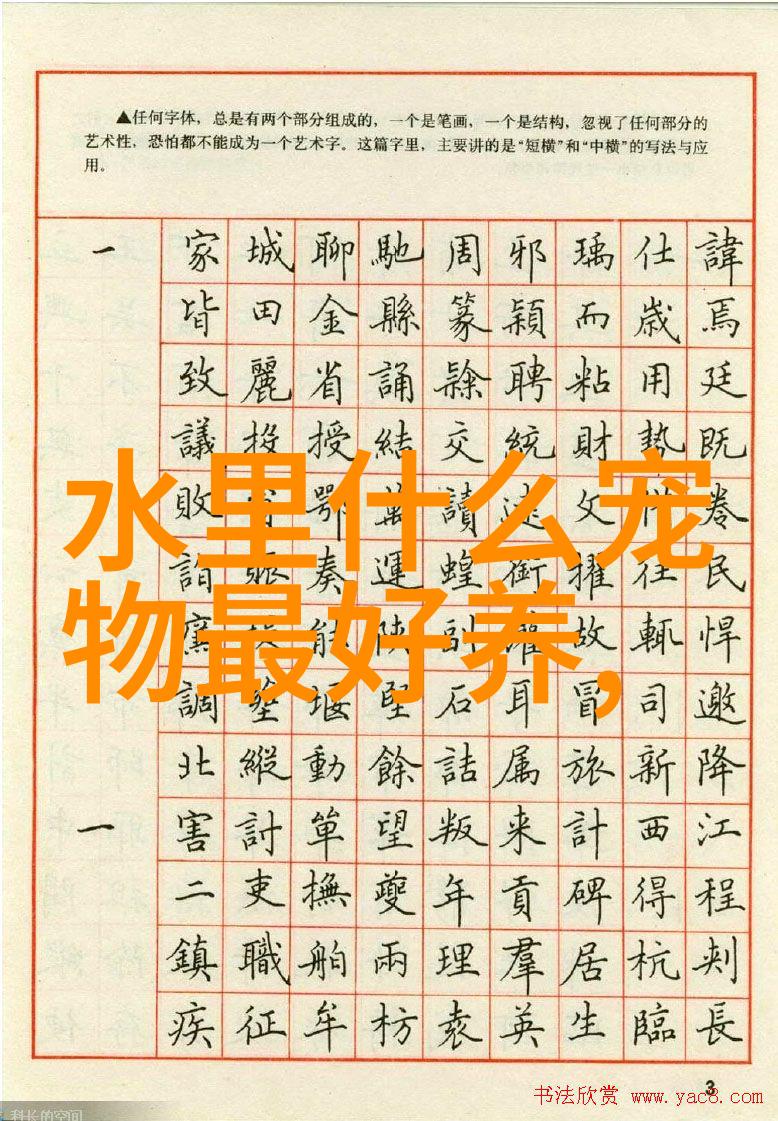 ▲任何字体，总是有两个部分组成的，一个是笔画，一个是结构，忽视了任何部分的
艺术性，恐怕都不能成为一个艺术字。这篇字里，主要讲的是“短横”和“中横”的写法与应
用。
一 家 城 聊 馳 周 邪 瑀 仕 諱
皆 田 金 縣 篆 穎 而 歲 焉
致 麗 省 誦 聘 粘 用 廷
議 投 授 結 交 統 財 勢 既
水里什么宠
敗 鄂 萬 讀 逮 文 卷
詣 賑 奏 運 蝗 銜 擢 往 民
物最好养,
能 陝 馴 灌 故 輒 悍
調 堰 堅 石 耳 冒 司 邀
北 縱 動 餘 詰 属 旅 新 降
一 害 討 単 望 叛 来 計 西 江
二 吏 撫 夔 年 貢 碑 得 程
鎮 職 舶 兩 理 羣 居 杭 刺
疾 征 牟 枋 袁 英 生 臨 長
3
书法欣赏 www.yac8.com
科长的空间